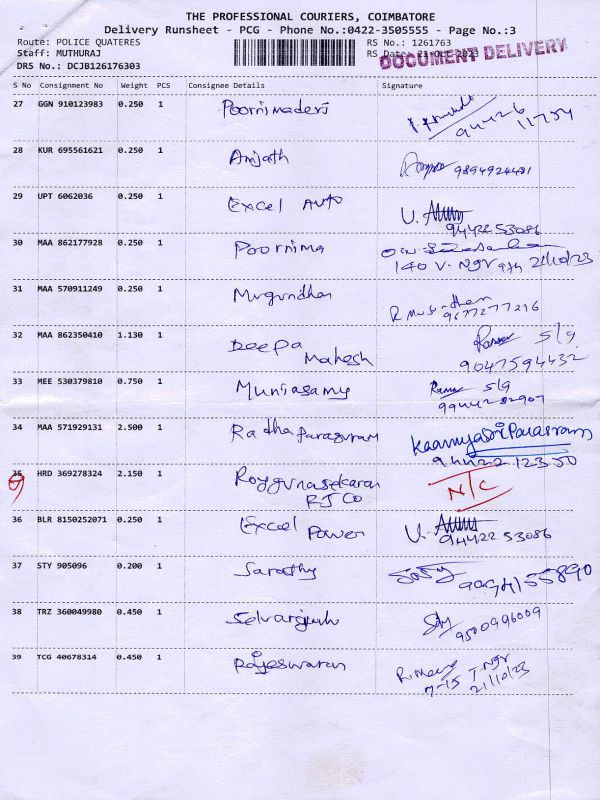 THE PROFESSIONAL COURIERS, COIMBATORE
Delivery Runsheet - PCG - Phone No.:0422-3505555 - Page No.:3
Route: POLICE QUATERES RS No.: 1261763
Staff: MUTHURAJ RS Date: 21-Oct-2023
DOCUMENT DELIVERY
DRS No.: DCJB126176303
S No Consignment No Weight PCS Consignee Details Signature
27 GGN 910123983 0.250 1 Poornimadevi
94426
11754
28 KUR 695561621 0.250 1 Amjath 9894924431
29 UPT 6062036 0.250 1 Excel Auto U.
9442253086
30 MAA 862177928 0.250 1 Poornima
140 V. Ngr 21/10/23
31 MAA 570911249 0.250 1 Mugundhan
9677277216
32 MAA 862350410 1.130 1 Deepa Mahesh S/g
9047594432
33 MEE 530379810 0.750 1 Muniasamy S/g
9944282907
34 MAA 571929131 2.500 1 Radha Parasuram Kaamya Sri Parasram
9442212350
35 HRD 369278324 2.150 1 Roygunasekaran N/C
RJ CO
36 BLR 8150252071 0.250 1 Excel Power U.
94422 53086
37 STY 905096 0.200 1 Sarathy
38 TRZ 360049980 0.450 1
9500996009
39 TCG 40678314 0.450 1 Rajeswaran
7-15 T. Ngr
21/10/23